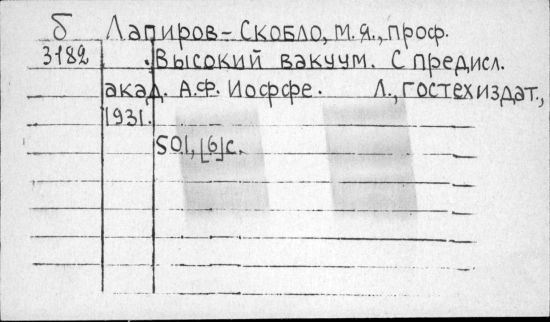 б Лапиров-Скобло, м.я., проф.
3182 Высокий вакуум. С предисл.
акад. А.Ф. Иоффе. Л., гостехиздат.,
1931.
501, [6] с.